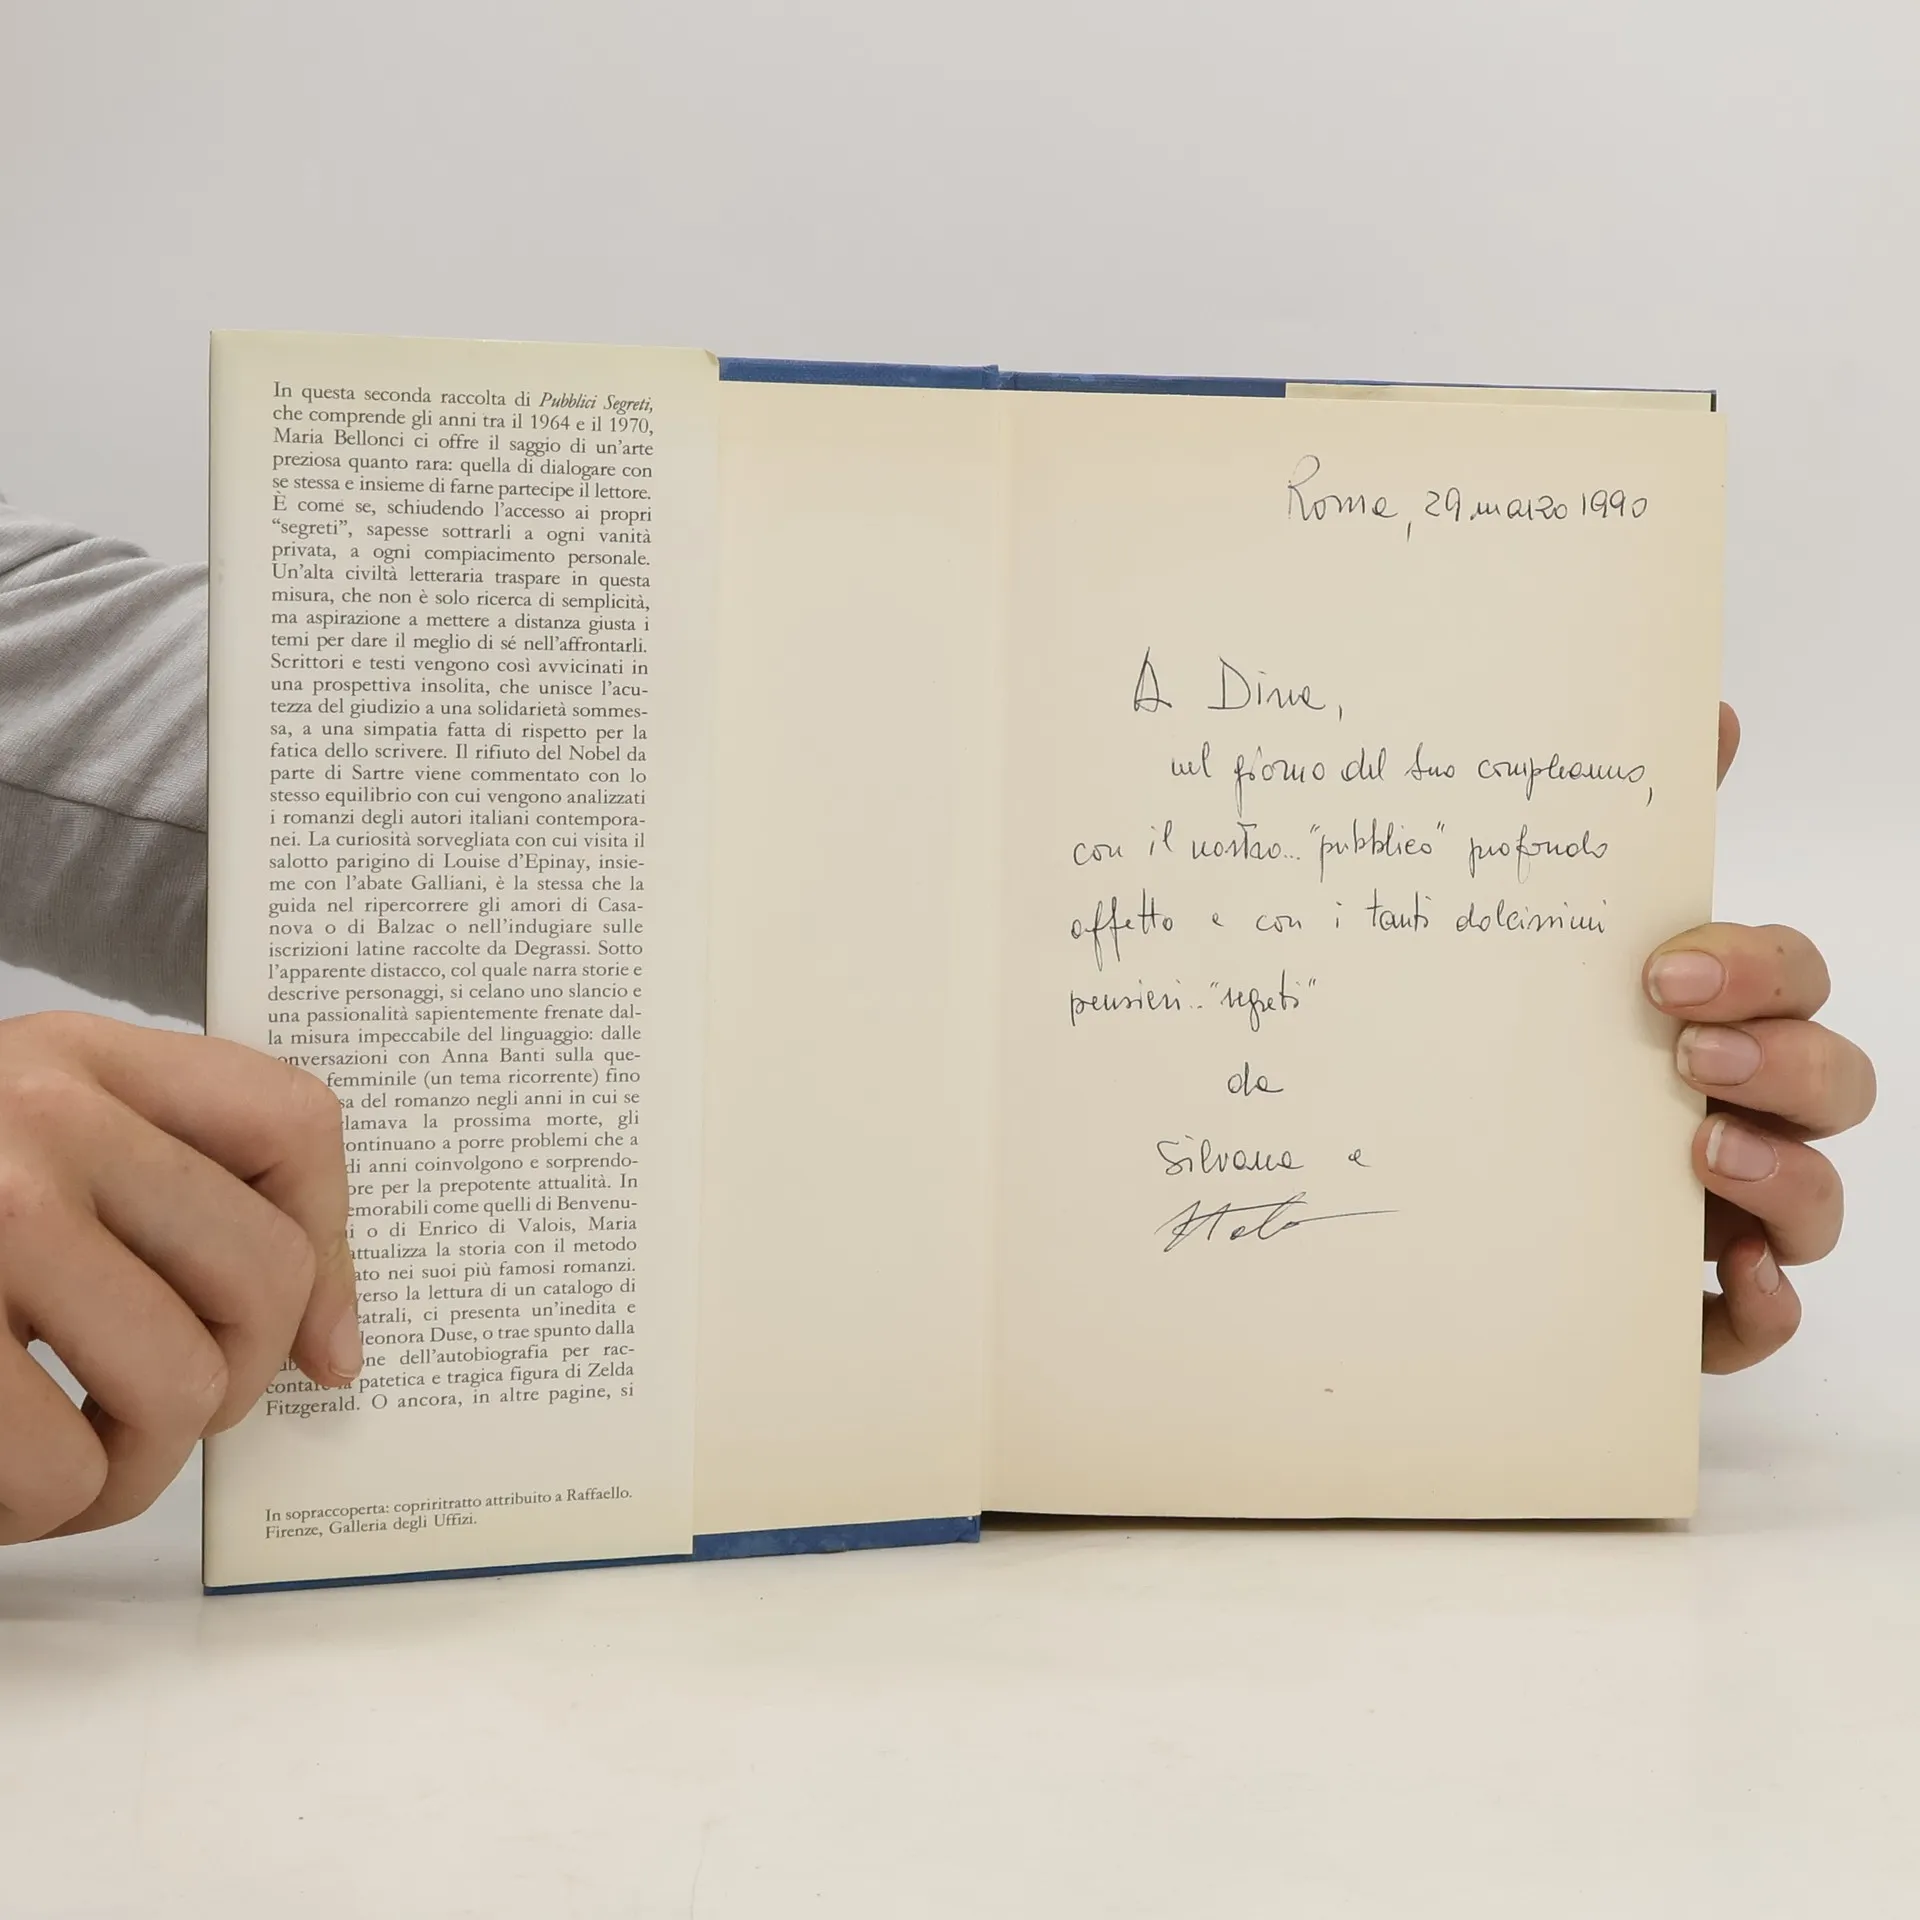 In questa seconda raccolta di Pubblici Segreti,
che comprende gli anni tra il 1964 e il 1970,
Maria Bellonci ci offre il saggio di un'arte
preziosa quanto rara: quella di dialogare con
se stessa e insieme di farne partecipe il lettore.
È come se, schiudendo l'accesso ai propri
“segreti”, sapesse sottrarli a ogni vanità
privata, a ogni compiacimento personale.
Un'alta civiltà letteraria traspare in questa
misura, che non è solo ricerca di semplicità,
ma aspirazione a mettere a distanza giusta i
temi per dare il meglio di sé nell'affrontarli.
Scrittori e testi vengono così avvicinati in
una prospettiva insolita, che unisce l'acu-
tezza del giudizio a una solidarietà sommes-
sa, a una simpatia fatta di rispetto per la
fatica dello scrivere. Il rifiuto del Nobel da
parte di Sartre viene commentato con lo
stesso equilibrio con cui vengono analizzati
i romanzi degli autori italiani contempora-
nei. La curiosità sorvegliata con cui visita il
salotto parigino di Louise d'Epinay, insie-
me con l'abate Galliani, è la stessa che la
guida nel ripercorrere gli amori di Casa-
nova o di Balzac o nell'indugiare sulle
iscrizioni latine raccolte da Degrassi. Sotto
l'apparente distacco, col quale narra storie e
descrive personaggi, si celano uno slancio e
una passionalità sapientemente frenate dal-
la misura impeccabile del linguaggio: dalle
onversazioni con Anna Banti sulla que-
femminile (un tema ricorrente) fino
sa del romanzo negli anni in cui se
lamava la prossima morte, gli
ontinuano a porre problemi che a
di anni coinvolgono e sorprendo-
ore per la prepotente attualità. In
emorabili come quelli di Benvenu-
i o di Enrico di Valois, Maria
attualizza la storia con il metodo
ato nei suoi più famosi romanzi.
verso la lettura di un catalogo di
eatrali, ci presenta un'inedita e
leonora Duse, o trae spunto dalla
ne dell'autobiografia per rac-
contare la patetica e tragica figura di Zelda
Fitzgerald. O ancora, in altre pagine, si
In sopraccoperta: copriritratto attribuito a Raffaello.
Firenze, Galleria degli Uffizi.
Roma, 29 marzo 1990
A Dina,
nel giorno del suo compleanno,
con il nostro... "pubblico" profondo
affetto e con i tanti dolcissimi
pensieri.. "segreti"
da
Silvana e